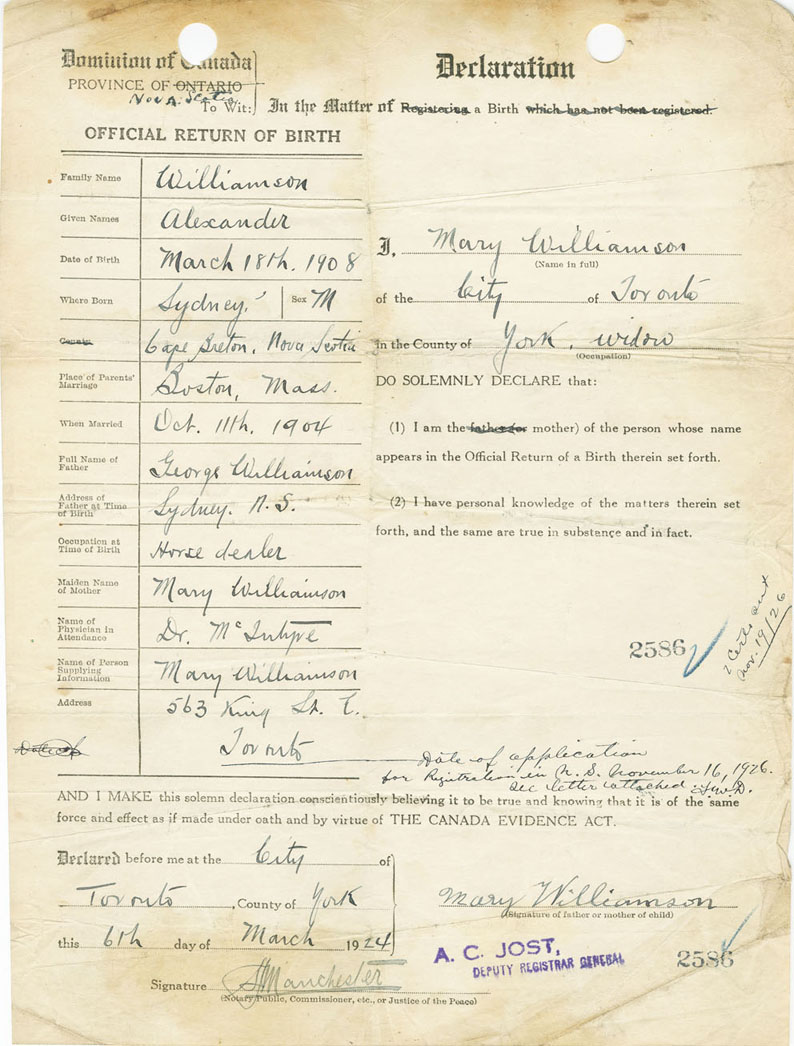 Dominion of Canada
PROVINCE OF ONTARIO
Nova Scotia
To Wit:
Declaration
In the Matter of Registering a Birth which has not been registered.
OFFICIAL RETURN OF BIRTH
Family Name Williamson
Given Names Alexander
Date of Birth March 18th. 1908
Where Born Sydney. Sex M
County Cape Breton, Nova Scotia
Place of Parents' Marriage Boston, Mass.
When Married Oct. 11th. 1904
Full Name of Father George Williamson
Address of Father at Time of Birth Sydney. N.S.
Occupation at Time of Birth Horse dealer
Maiden Name of Mother Mary Williamson
Name of Physician in Attendance Dr. McIntyre
Name of Person Supplying Information Mary Williamson
Address 563 King St. E.
Toronto
I, Mary Williamson
(Name in full)
of the City of Toronto
in the County of York, widow
(Occupation)
DO SOLEMNLY DECLARE that:
(1) I am the father (or mother) of the person whose name
appears in the Official Return of a Birth therein set forth.
(2) I have personal knowledge of the matters therein set
forth, and the same are true in substance and in fact.
2586
2 Certs sent
Nov. 19/26
Date of application
for Registration in N.S. November 16, 1926.
See letter attached
AND I MAKE this solemn declaration conscientiously believing it to be true and knowing that it is of the same
force and effect as if made under oath and by virtue of THE CANADA EVIDENCE ACT.
Declared before me at the City of
Toronto, County of York
this 6th day of March 1924
Signature Manchester
(Notary Public, Commissioner, etc., or Justice of the Peace)
Mary Williamson
(Signature of father or mother of child)
A. C. JOST,
DEPUTY REGISTRAR GENERAL
2586